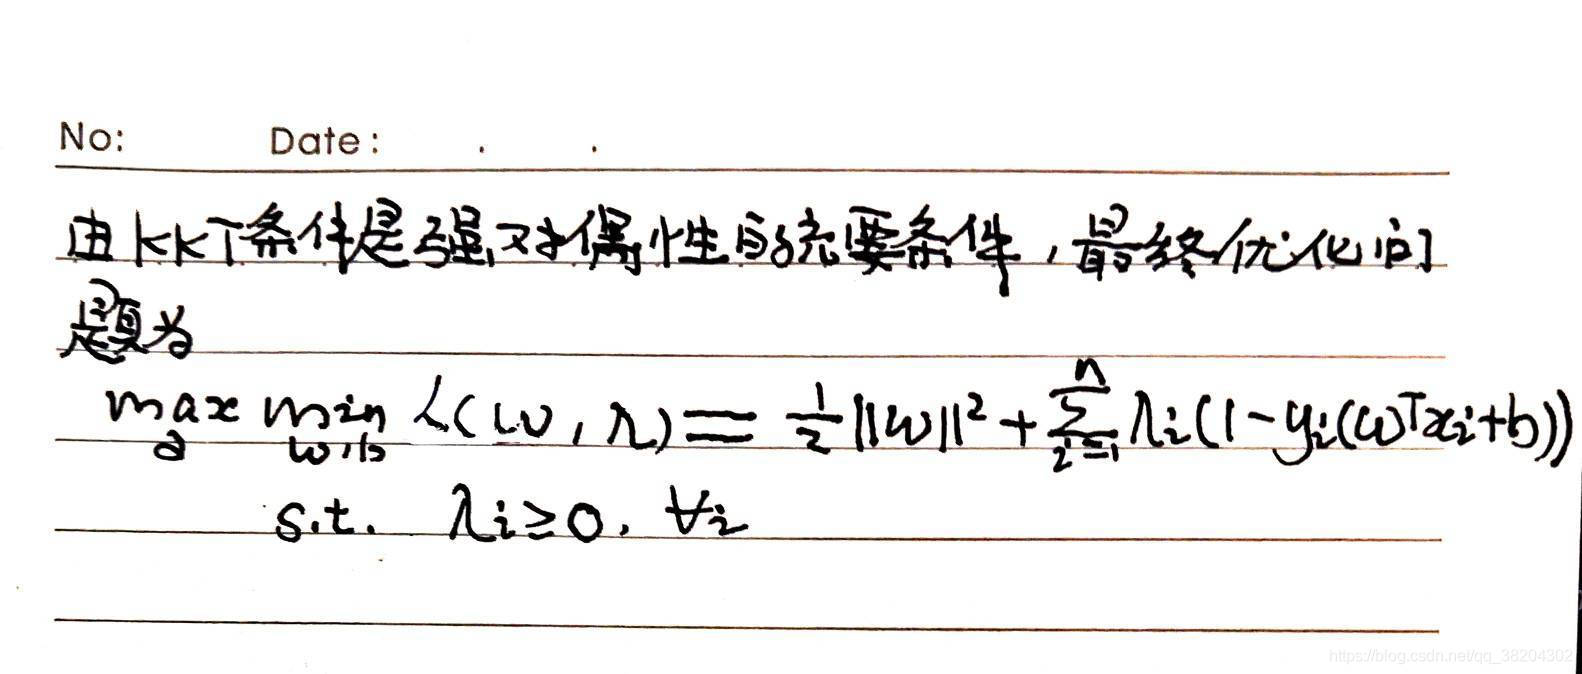 No: Date: . .
由KKT条件是强对偶性的充要条件,最终优化问
题为
max min L(w,λ)= 1/2 ||w||² + Σ λi(1-yi(wᵀxi+b))
a w,b i=1 n
s.t. λi≥0, ∀i
https://blog.csdn.net/qq_38204302